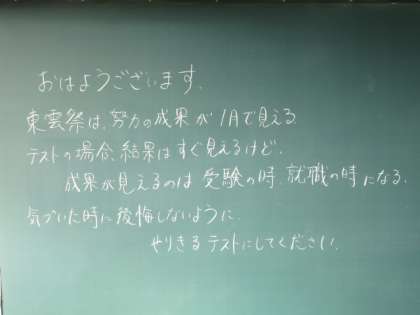 おはようございます、
東雲祭は、努力の成果が1月で見える
テストの場合、結果はすぐ見えるけど、
成果が見えるのは受験の時、就職の時になる、
気づいた時に後悔しないように、
やりきるテストにしてください、